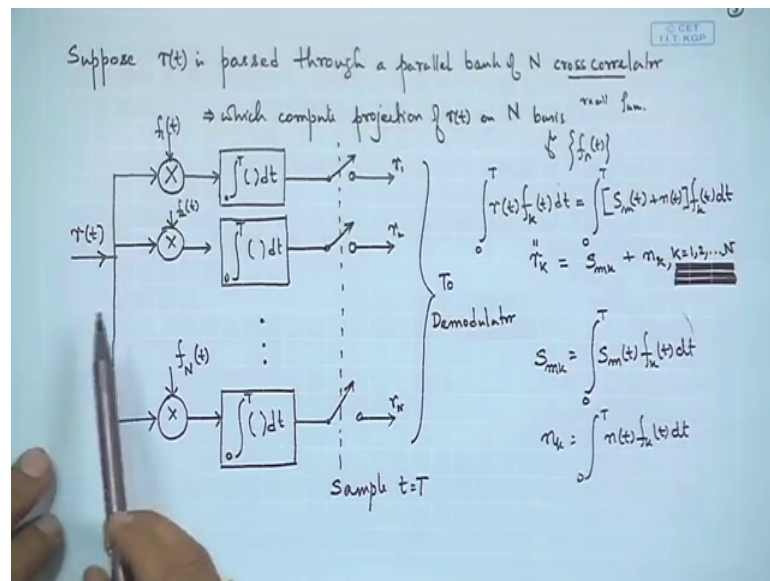 © CET
I.I.T. KGP
Suppose r(t) is passed through a parallel bank of N cross correlator
⇒ which compute projection of r(t) on N basis
fun.
{f_n(t)}
f_1(t)
∫_0^T ( ) dt
r_1
f_2(t)
∫_0^T ( ) dt
r_2
r(t)
f_N(t)
∫_0^T ( ) dt
r_N
Sample t=T
To
Demodulator
∫_0^T r(t) f_k(t) dt = ∫_0^T [S_m(t) + n(t)] f_k(t) dt
r_k = S_mk + n_k, k=1,2,...N
S_mk = ∫_0^T S_m(t) f_k(t) dt
n_k = ∫_0^T n(t) f_k(t) dt